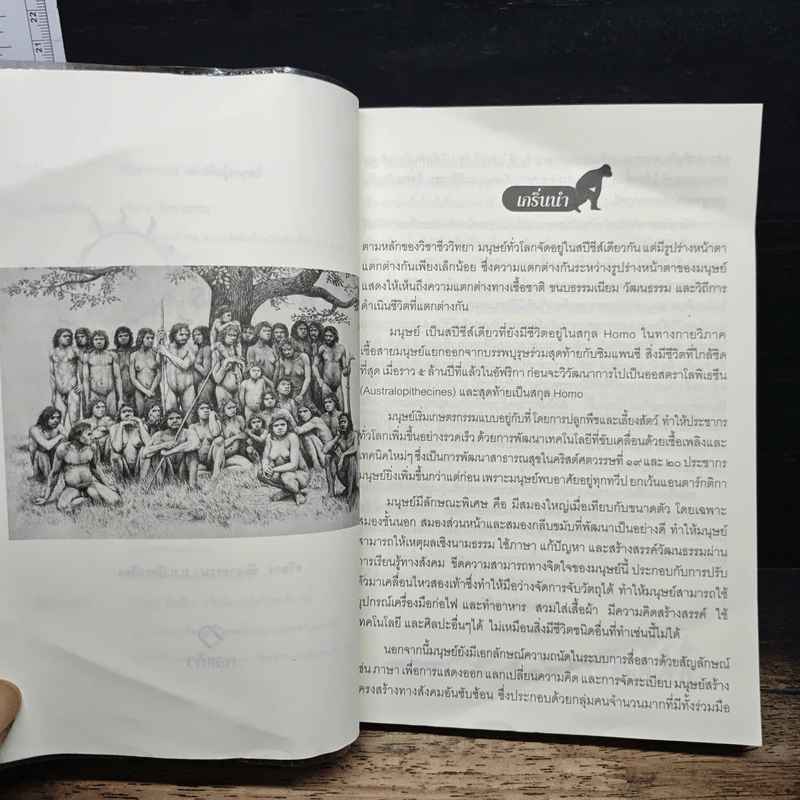 22
21
เกริ่นนำ
ตามหลักของวิชาชีววิทยา มนุษย์ทั่วโลกจัดอยู่ในสปีชีส์เดียวกัน แต่มีรูปร่างหน้าตา
แตกต่างกันเพียงเล็กน้อย ซึ่งความแตกต่างกันระหว่างรูปร่างหน้าตาของมนุษย์
แสดงให้เห็นถึงความแตกต่างทางเชื้อชาติ ขนบธรรมเนียม วัฒนธรรม และวิถีการ
ดำเนินชีวิตที่แตกต่างกัน
มนุษย์ เป็นสปีชีส์เดียวที่ยังมีชีวิตอยู่ในสกุล Homo ในทางกายวิภาค
เชื้อสายมนุษย์แยกออกจากบรรพบุรุษร่วมสุดท้ายกับชิมแพนซี สิ่งมีชีวิตที่ใกล้ชิด
ที่สุด เมื่อราว ๕ ล้านปีที่แล้วในอัฟริกา ก่อนจะวิวัฒนาการไปเป็นออสตราโลพิเธซีน
(Australopithecines) และสุดท้ายเป็นสกุล Homo
มนุษย์เริ่มเกษตรกรรมแบบอยู่กับที่ โดยการปลูกพืชและเลี้ยงสัตว์ ทำให้ประชากร
ทั่วโลกเพิ่มขึ้นอย่างรวดเร็ว ด้วยการพัฒนาเทคโนโลยีที่ขับเคลื่อนด้วยเชื้อเพลิงและ
เทคนิคใหม่ๆ ซึ่งเป็นการพัฒนาสาธารณสุขในคริสต์ศตวรรษที่ ๑๙ และ ๒๐ ประชากร
มนุษย์ยิ่งเพิ่มขึ้นกว่าแต่ก่อน เพราะมนุษย์พบอาศัยอยู่ทุกทวีป ยกเว้นแอนตาร์กติกา
มนุษย์มีลักษณะพิเศษ คือ มีสมองใหญ่เมื่อเทียบกับขนาดตัว โดยเฉพาะ
สมองชั้นนอก สมองส่วนหน้าและสมองกลีบขมับที่พัฒนาเป็นอย่างดี ทำให้มนุษย์
สามารถให้เหตุผลเชิงนามธรรม ใช้ภาษา แก้ปัญหา และสร้างสรรค์วัฒนธรรมผ่าน
การเรียนรู้ทางสังคม ขีดความสามารถทางจิตใจของมนุษย์นี้ ประกอบกับการปรับ
ตัวมาเคลื่อนไหวสองเท้าซึ่งทำให้มือว่างจัดการจับวัตถุได้ ทำให้มนุษย์สามารถใช้
อุปกรณ์เครื่องมือก่อไฟ และทำอาหาร สวมใส่เสื้อผ้า มีความคิดสร้างสรรค์ ใช้
เทคโนโลยี และศิลปะอื่นๆได้ ไม่เหมือนสิ่งมีชีวิตชนิดอื่นที่ทำเช่นนี้ไม่ได้
นอกจากนี้มนุษย์ยังมีเอกลักษณ์ความถนัดในระบบการสื่อสารด้วยสัญลักษณ์
เช่น ภาษา เพื่อการแสดงออก แลกเปลี่ยนความคิด และการจัดระเบียบ มนุษย์สร้าง
โครงสร้างทางสังคมอันซับซ้อน ซึ่งประกอบด้วยกลุ่มคนจำนวนมากที่มีทั้งร่วมมือ